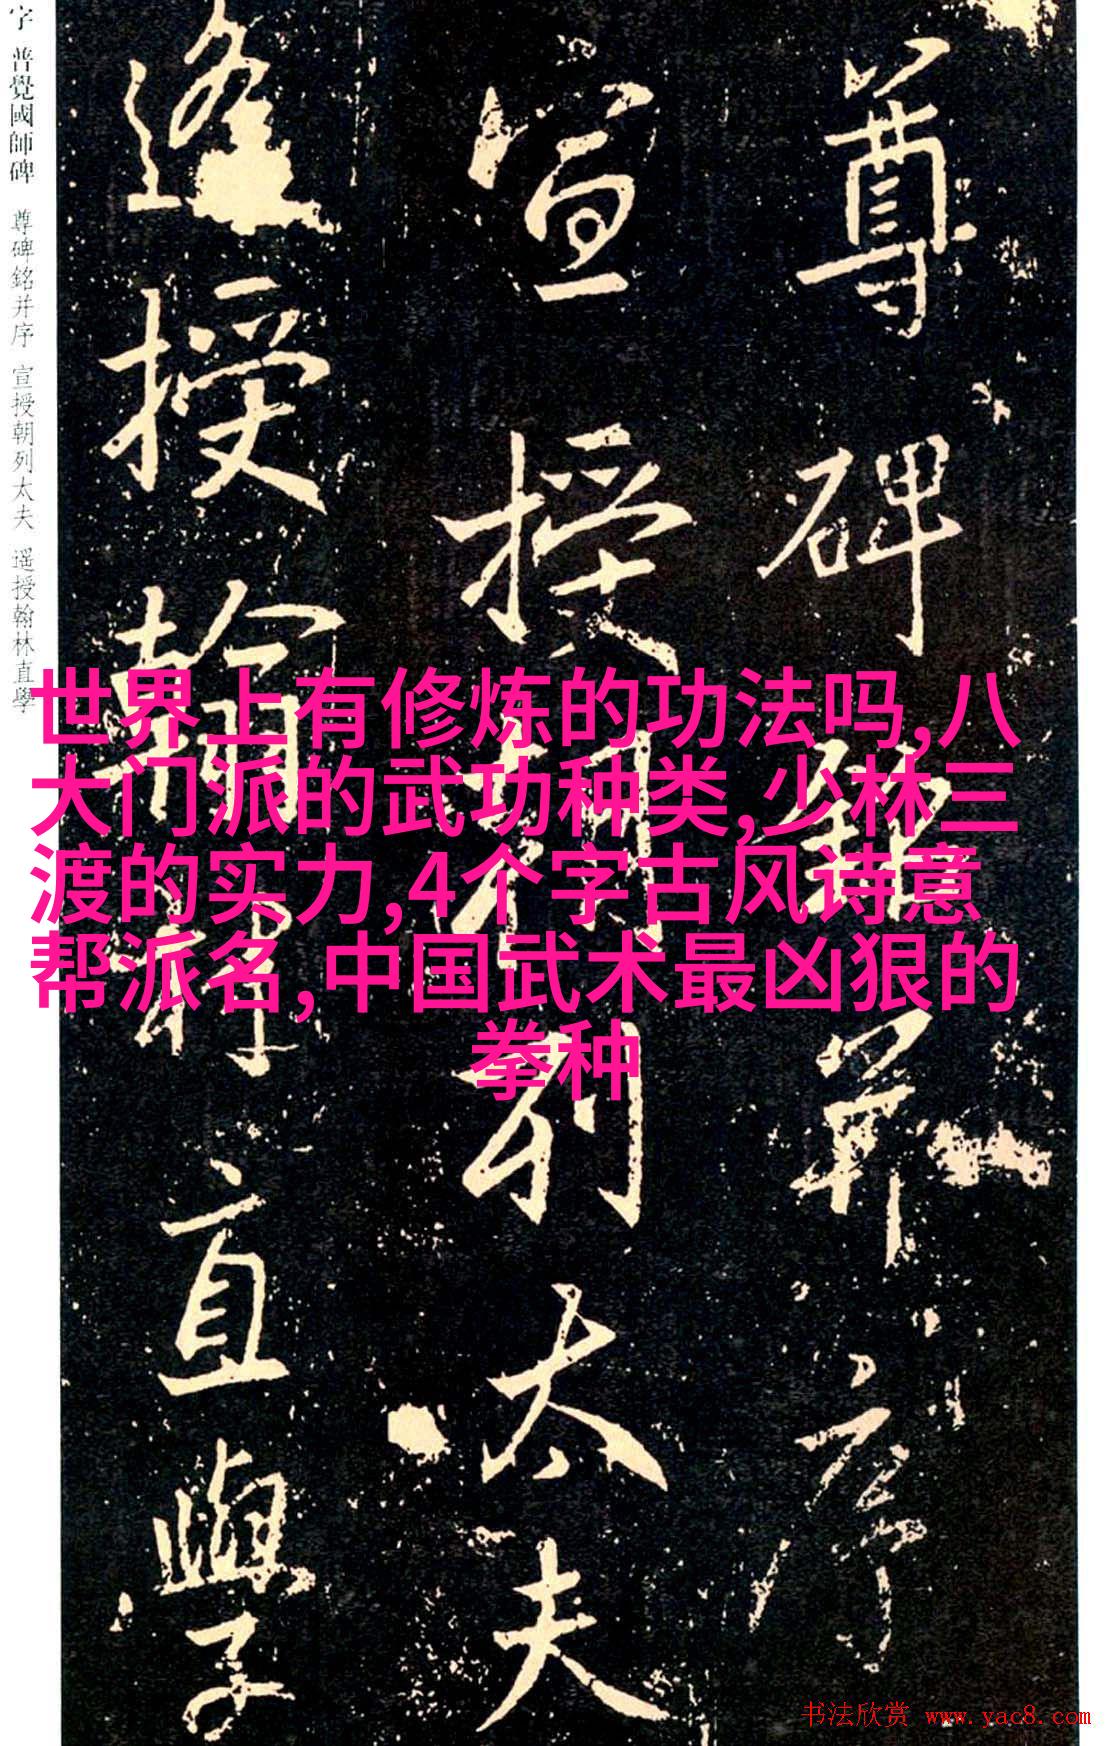 尊碑銘并序
宣授朝列太夫
遥授翰林直學
字 普覺國師碑 尊碑銘并序 宣授朝列太夫 遥授翰林直學
世界上有修炼的功法吗,八
大门派的武功种类,少林三
渡的实力,4个字古风诗意
帮派名,中国武术最凶狠的
拳种
书法欣赏 www.yac8.com